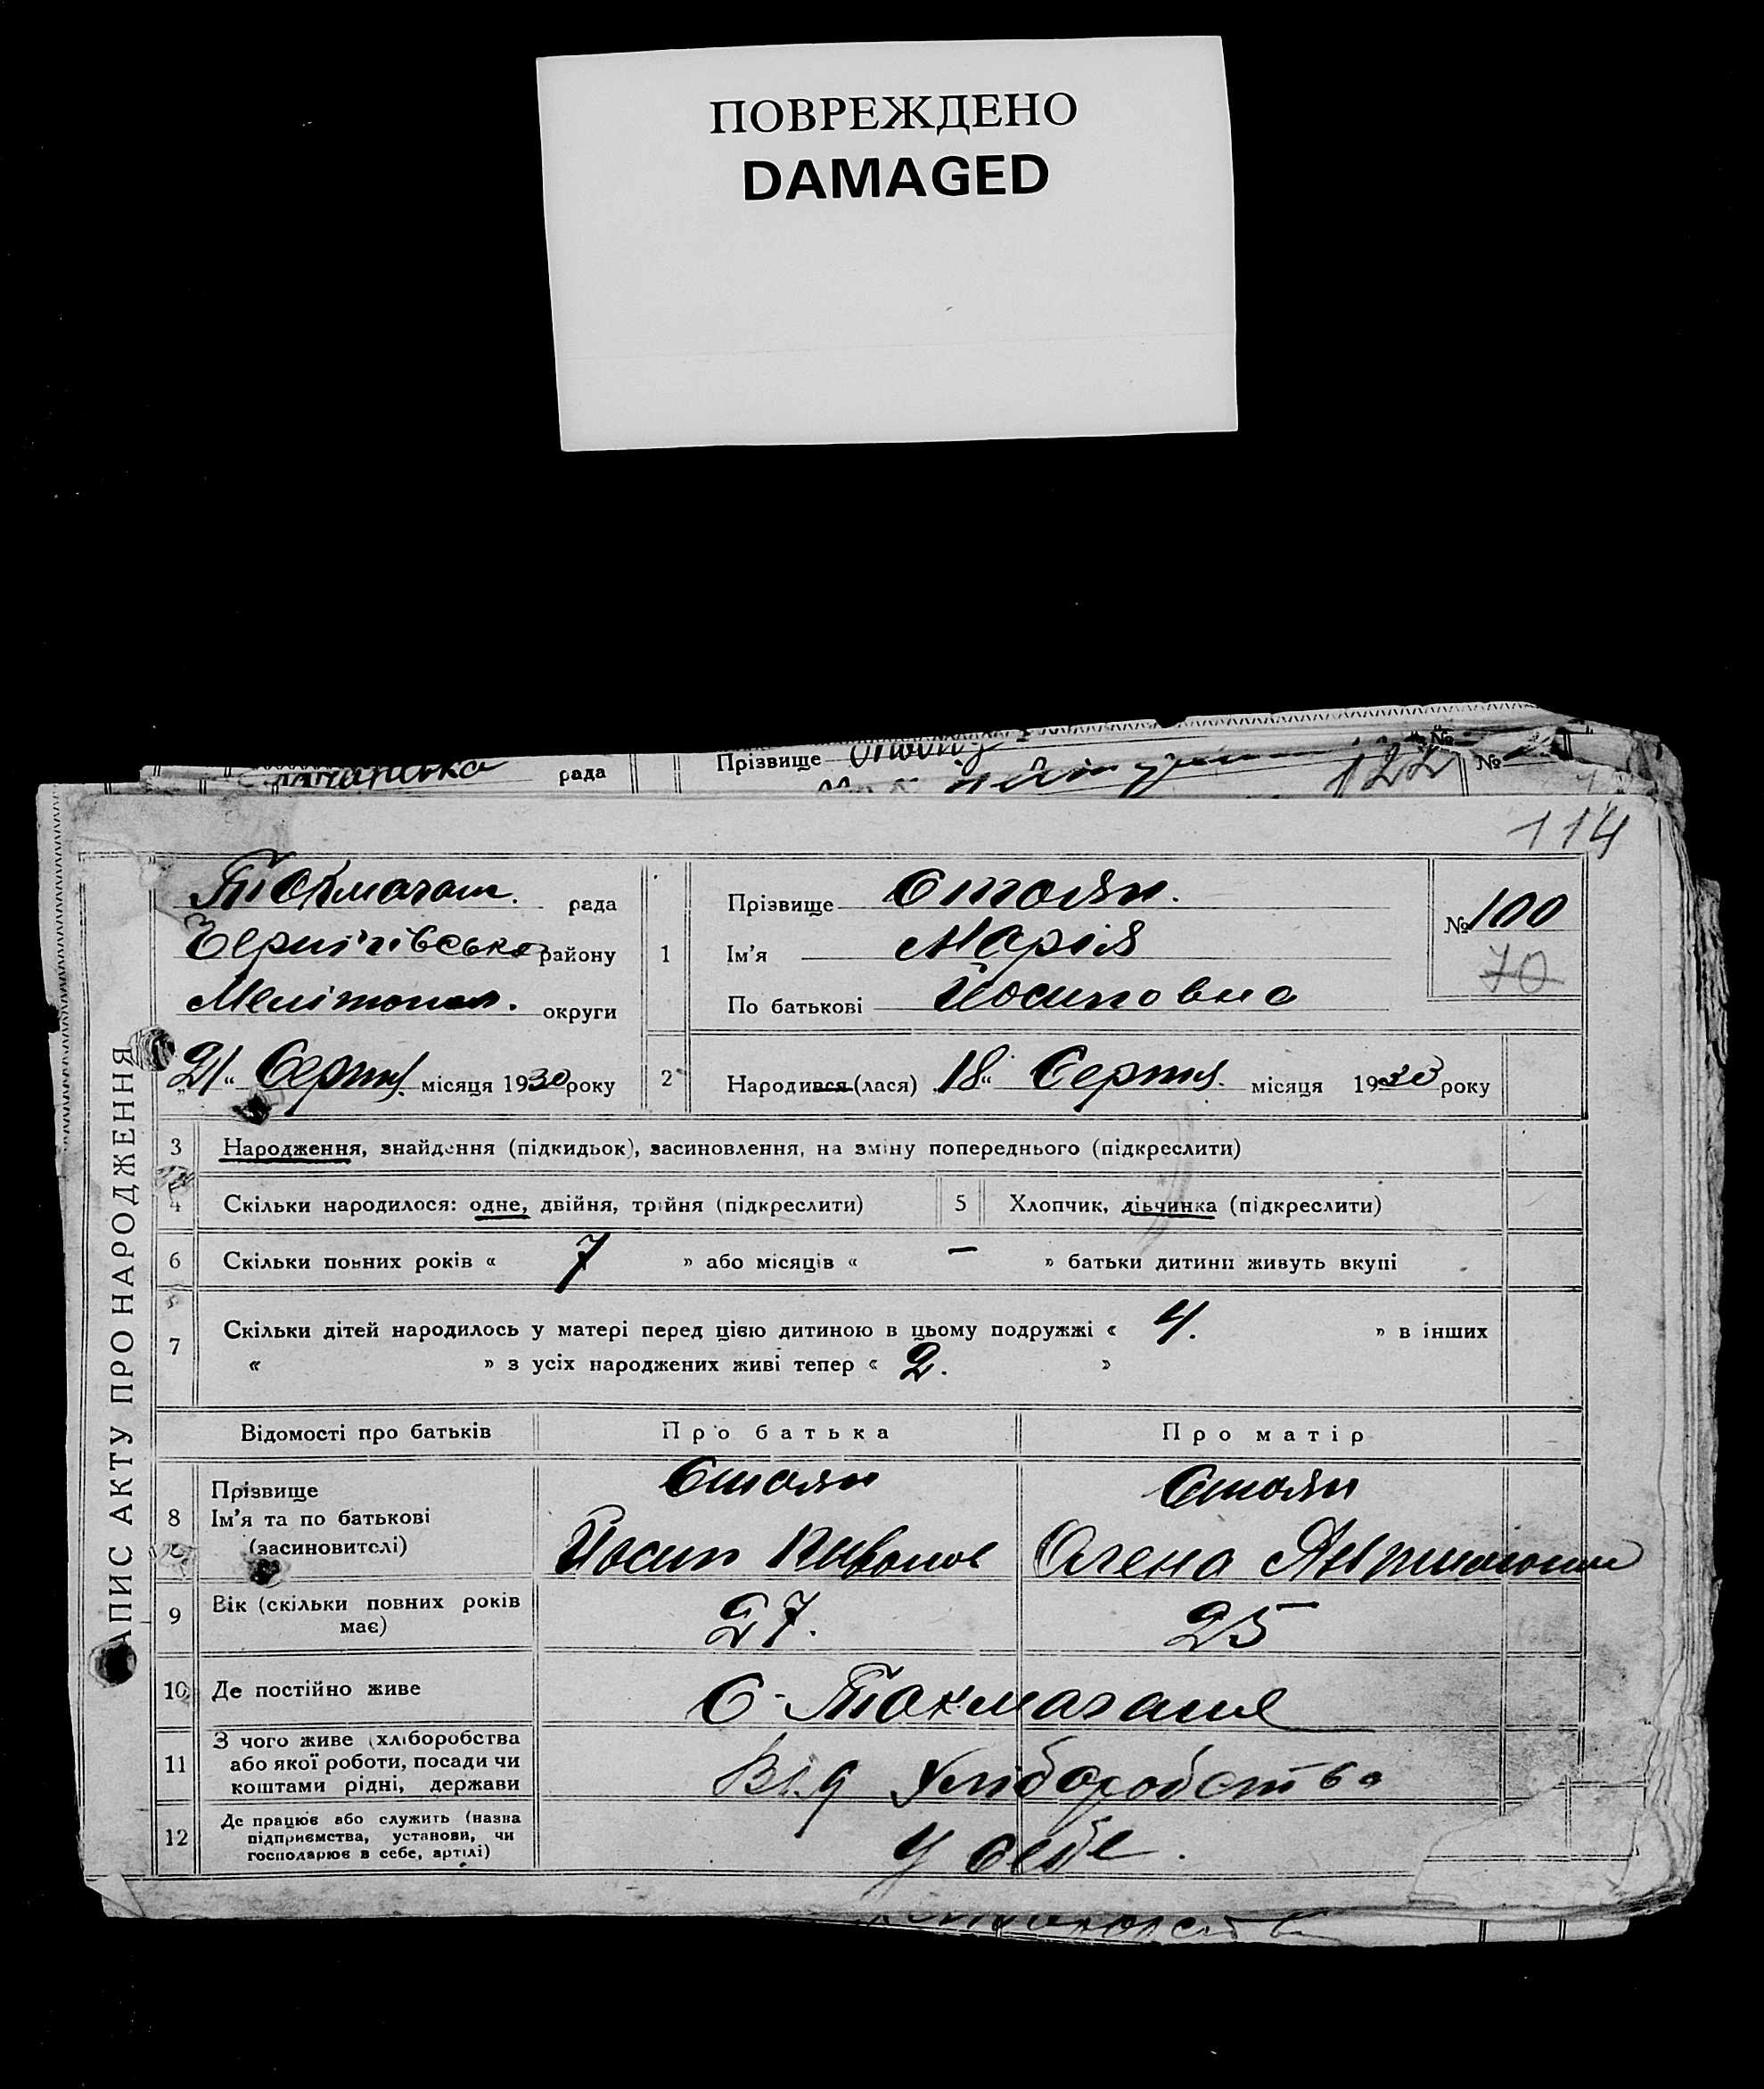 ПОВРЕЖДЕНО
DAMAGED
рада
Прізвище
122
№
114
Токмачан. рада
Чернігівсько району
Мелітопол. округи
„21“ Серпня місяця 1930 року
1
Прізвище Стоян.
Ім'я Марія
По батькові Йосиповна
№ 100
70
2
Народився (лася) „18“ Серпня місяця 1930 року
АПИС АКТУ ПРО НАРОДЖЕННЯ
3 Народження, знайдення (підкидьок), засиновлення, на зміну попереднього (підкреслити)
4 Скільки народилося: одне, двійня, трійня (підкреслити) 5 Хлопчик, дівчинка (підкреслити)
6 Скільки повних років « 7 » або місяців « — » батьки дитини живуть вкупі
7 Скільки дітей народилось у матері перед цією дитиною в цьому подружжі « 4. » в інших
« » з усіх народжених живі тепер « 2. »
Відомості про батьків Про батька Про матір
8 Прізвище Стоян Стоян
Ім'я та по батькові
(засиновителі) Йосип Олена
9 Вік (скільки повних років має) 27. 25
10 Де постійно живе С-Токмачання
11 З чого живе (хліборобства
або якої роботи, посади чи
коштами рідні, держави
Від Хліборобства
12 Де працює або служить (назва
підприємства, установи, чи
господарює в себе, артілі)
У себе.